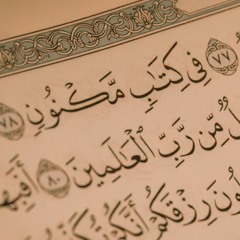 ٧٧ فِى كِتَٰبٍ مَّكْنُونٍ ٧٨
مِّن رَّبِّ ٱلْعَٰلَمِينَ ٨٠
رِزْقَكُمْ أَنَّكُمْ